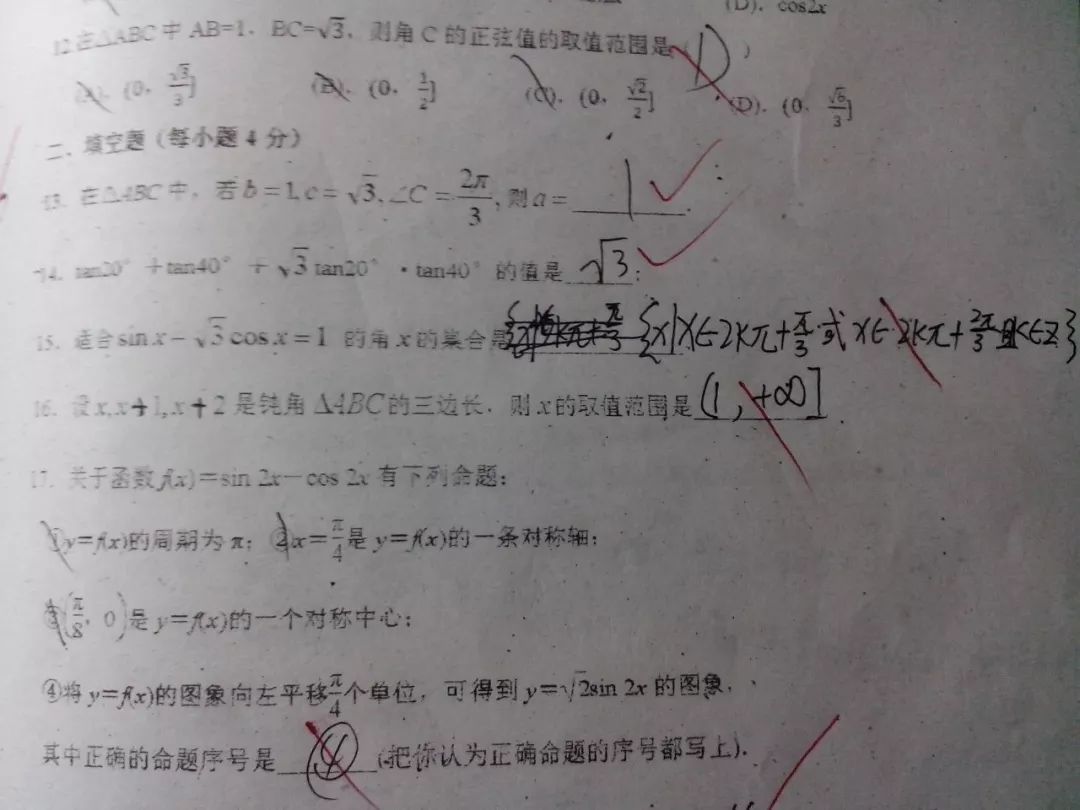 (D). cos2x
12.在△ABC中 AB=1, BC=√3, 则角 C 的正弦值的取值范围是( D )
(A). (0, √3/3] (B). (0, 1/2] (C). (0, √2/2] (D). (0, √6/3]
二、填空题(每小题 4 分)
13. 在△ABC中, 若b=1,c=√3,∠C=2π/3,则a=1.
14. tan20°+tan40°+√3tan20°·tan40°的值是√3;
15. 适合sin x-√3cos x=1 的角x的集合是{x|x∈2kπ+π/3 或 x∈2kπ+2π/3 且k∈Z}
16. 设x,x+1,x+2是钝角△ABC的三边长, 则x的取值范围是(1,+∞]
17. 关于函数f(x)=sin 2x-cos 2x有下列命题:
①y=f(x)的周期为π; ②x=π/4是y=f(x)的一条对称轴;
③(π/8, 0)是y=f(x)的一个对称中心;
④将y=f(x)的图象向左平移π/4个单位, 可得到y=√2sin 2x的图象,
其中正确的命题序号是④(把你认为正确命题的序号都写上).